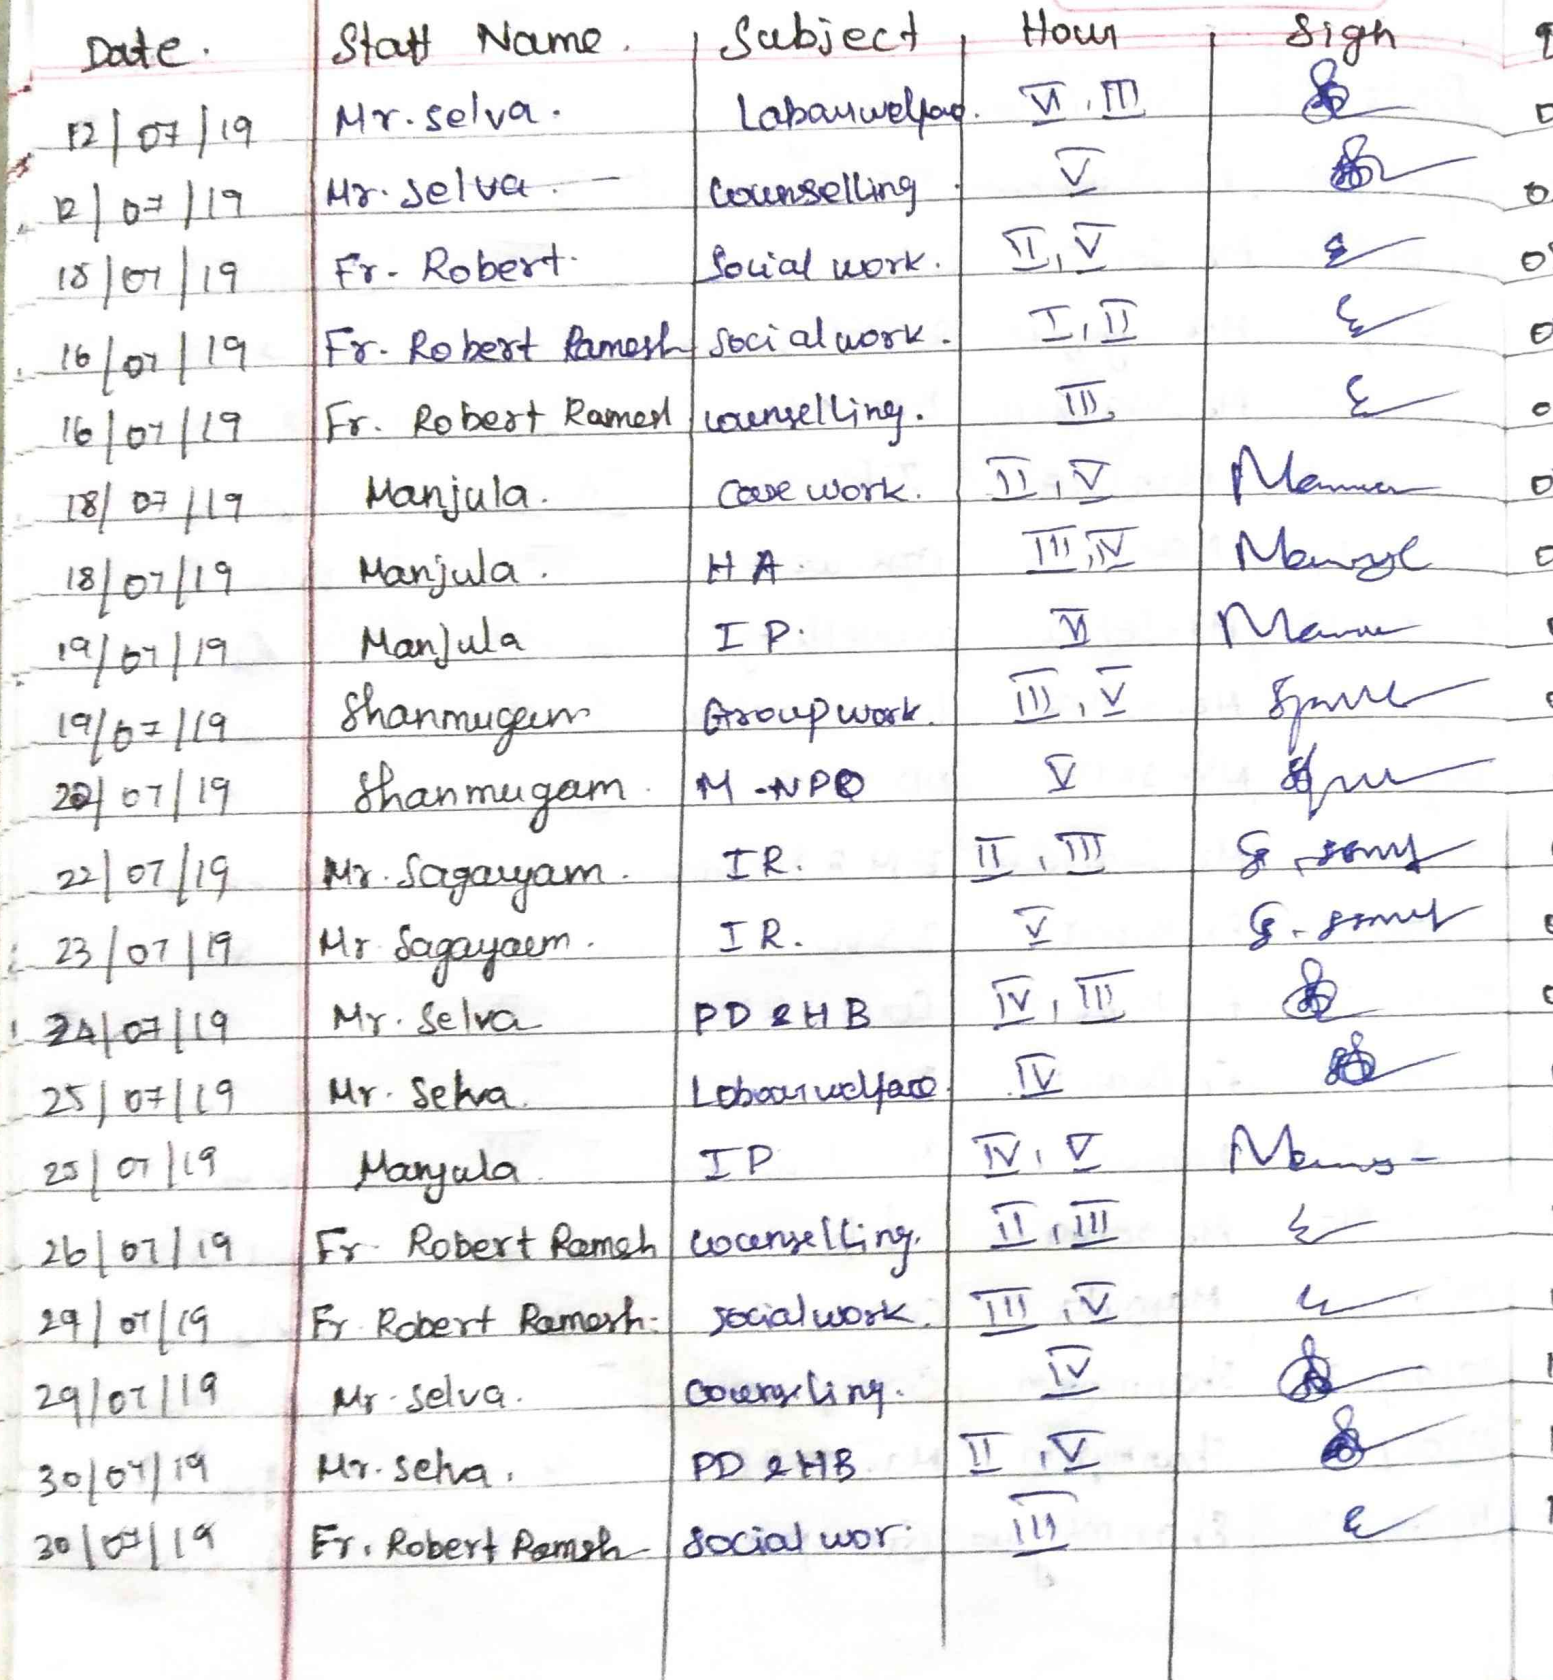 Date. Staff Name. Subject Hour Sign
12/07/19 Mr. Selva. Labourwelfare. VI, III
12/07/19 Mr. Selva. Counselling V
15/07/19 Fr. Robert. Social work. II, V
16/07/19 Fr. Robert Ramesh Social work. I, II
16/07/19 Fr. Robert Ramesh counselling. III
18/07/19 Manjula. Case work. II, V
18/07/19 Manjula. HA III, IV
19/07/19 Manjula IP. VI
19/07/19 Shanmugam Group work. III, V
22/07/19 Shanmugam. M-NPO V
22/07/19 Mr. Sagayam. IR. II, III
23/07/19 Mr Sagayam. IR. V
24/07/19 Mr. Selva PD & HB IV, III
25/07/19 Mr. Selva. Labour welfare. IV
25/07/19 Manjula IP IV, V
26/07/19 Fr. Robert Ramesh counselling. II, III
29/07/19 Fr Robert Ramesh. social work. III, V
29/07/19 Mr. Selva. Counseling. IV
30/07/19 Mr. Selva. PD & HB II, V
30/07/19 Fr. Robert Ramesh Social wor. III